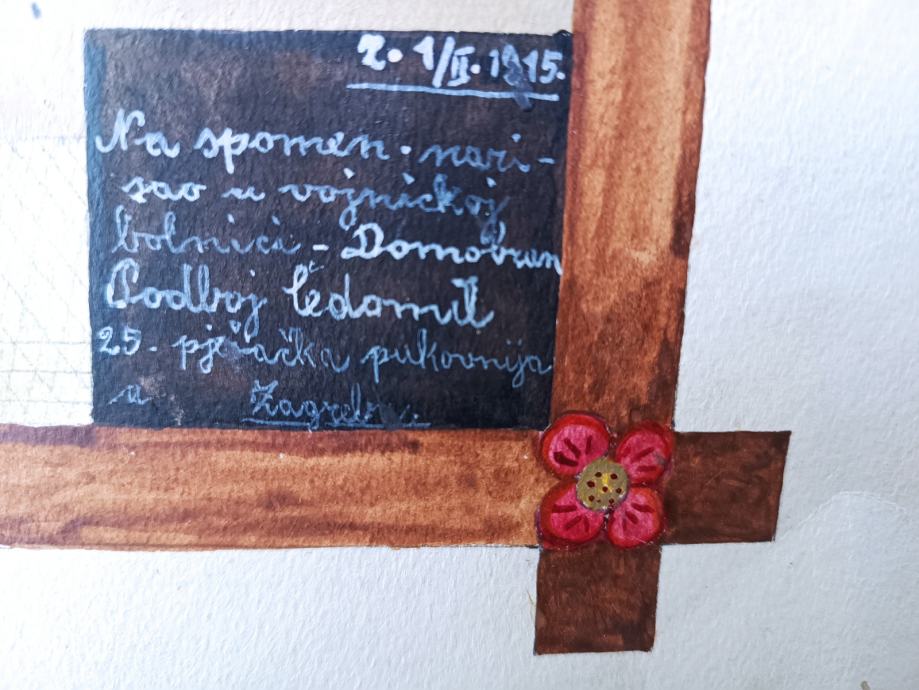 2. 1/II. 1915.
Na spomen. nari-
sao u vojničkoj
bolnici - Domobran
Podboj Čedomil
25. pješačka pukovnija
u Zagrebu.